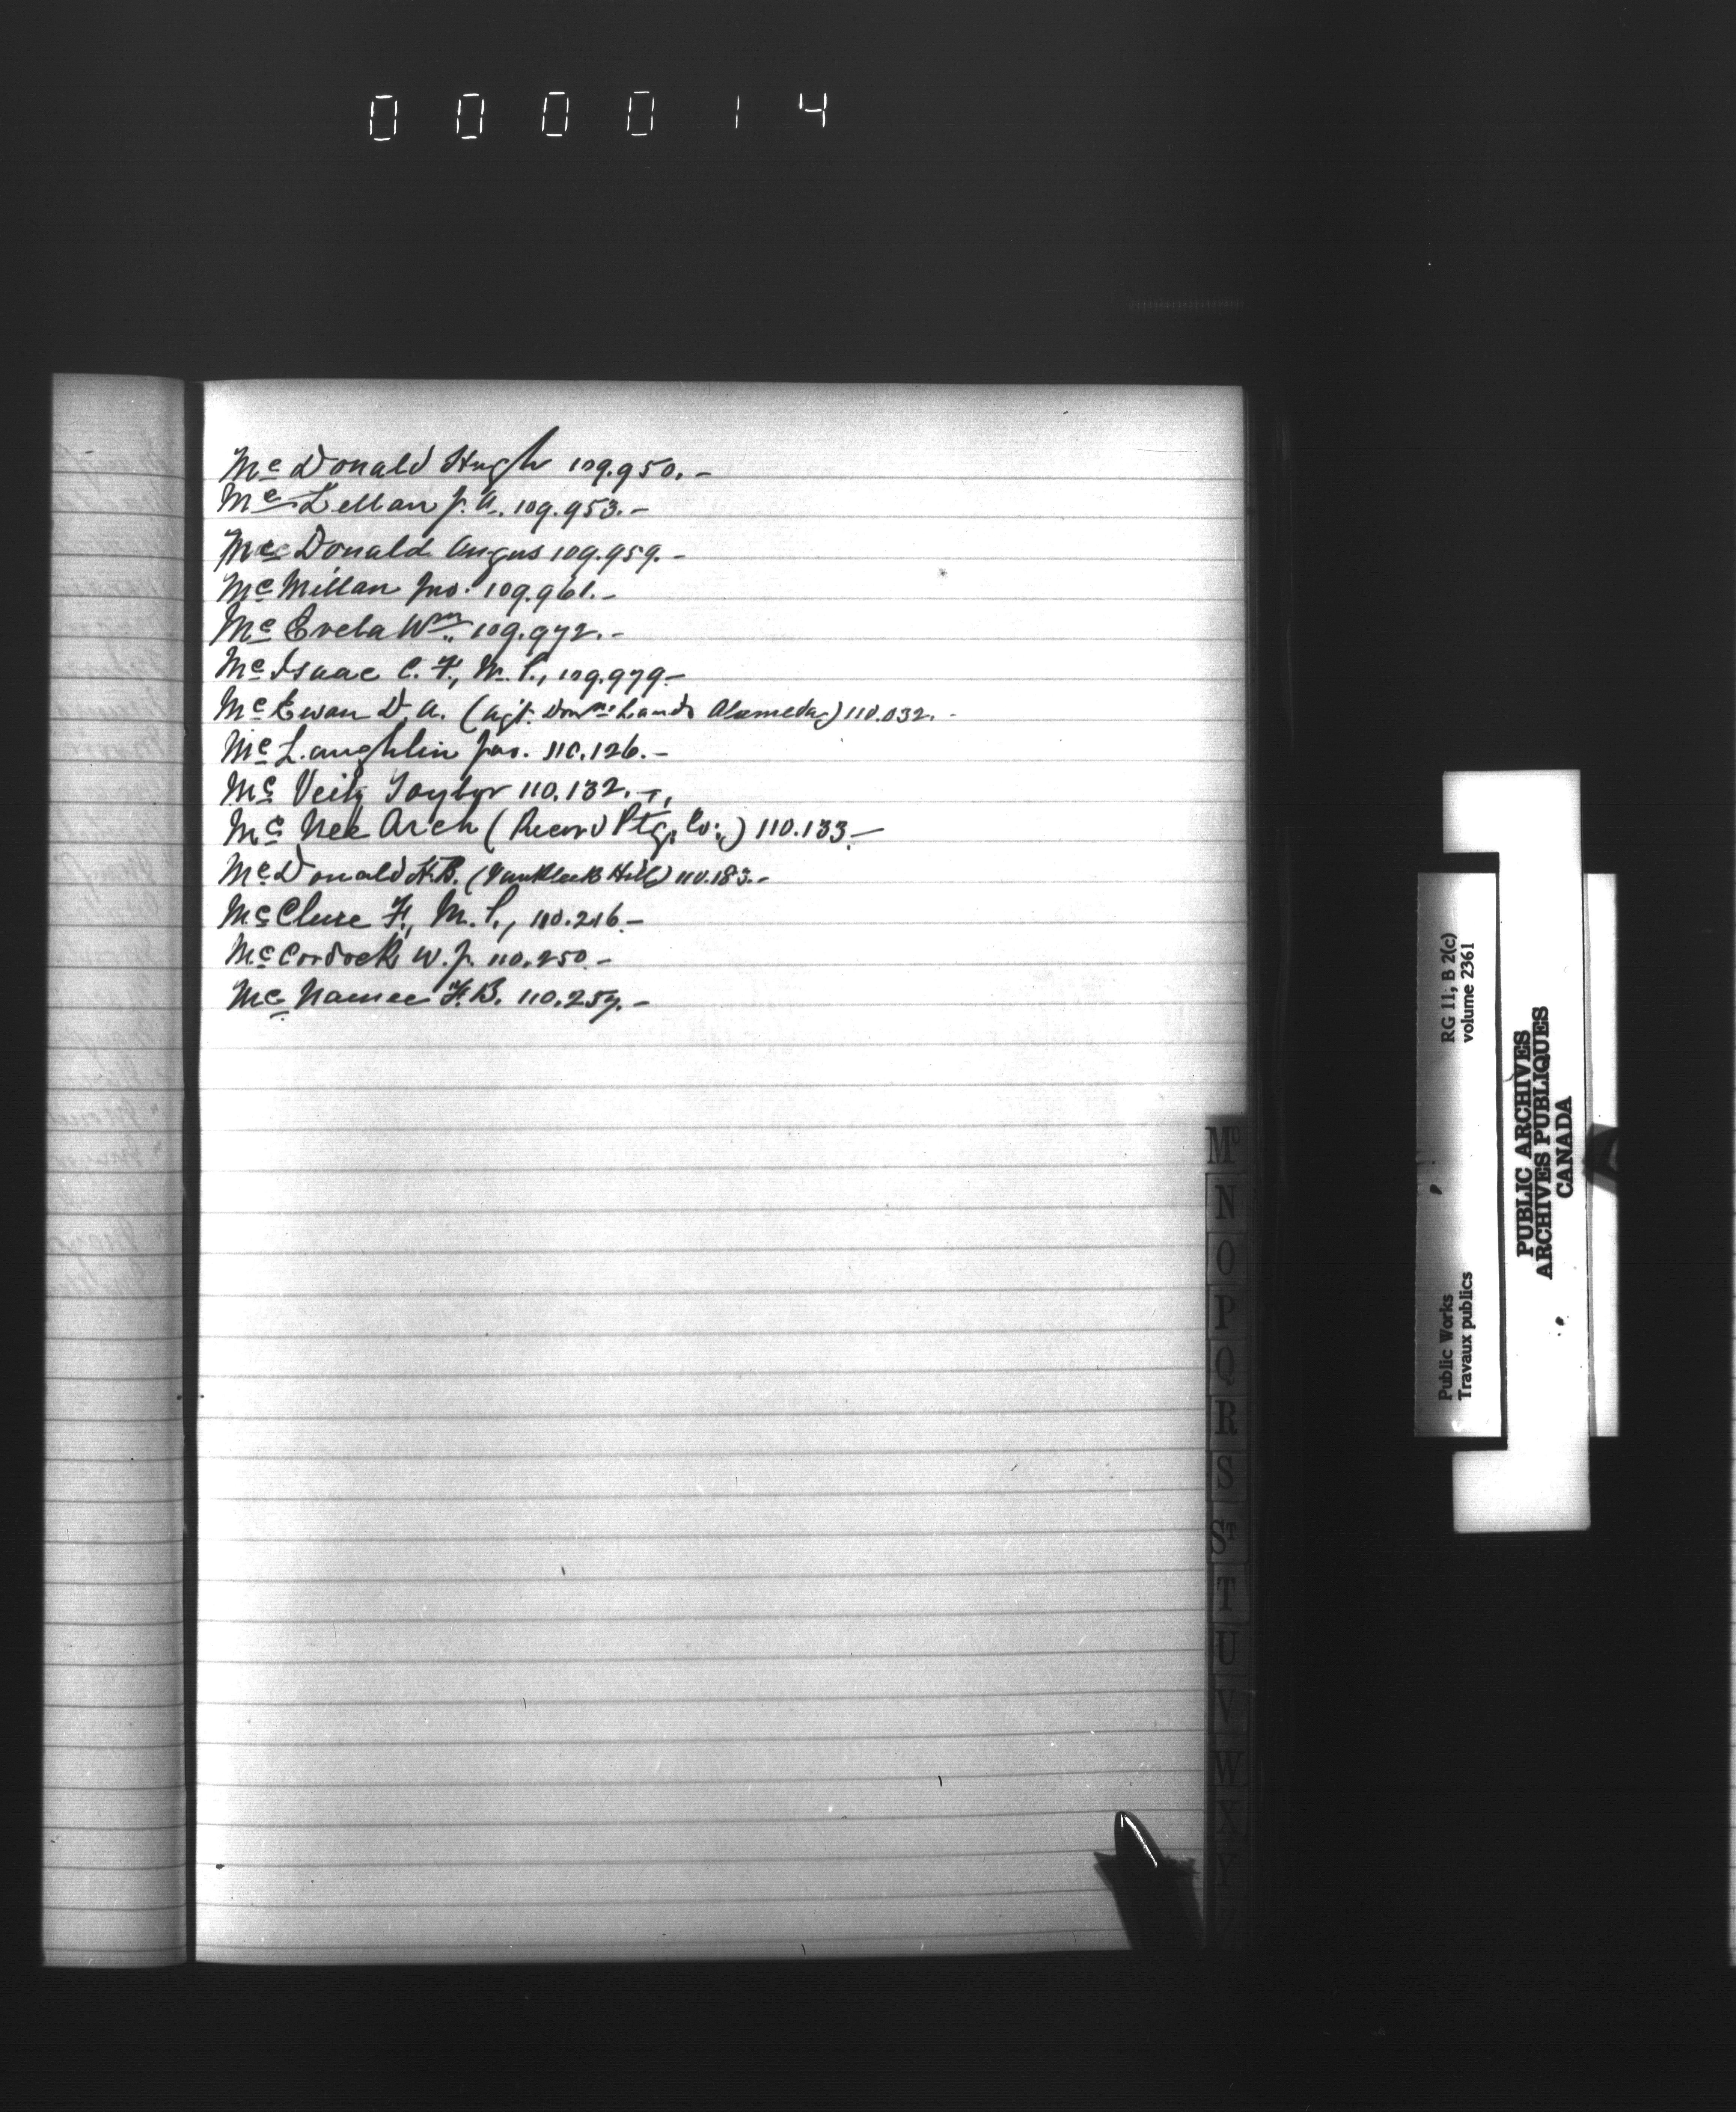 000014
Mc Donald Hugh 109.950.-
Mc Lellan J. A. 109.953.-
Mc Donald Angus 109.959.-
Mc Millan Jno. 109.961.-
Mc Wm. 109.972.-
Mc Isaac C. F., M. P., 109.979-
Mc Ewan D. A. (Agt. Domn. Lands Alameda) 110.032.-
Mc Laughlin Jas. 110.126.-
Mc Veity Taylor 110.132.-
Mc Nee Arch (Record Ptg. Co.) 110.133-
Mc Donald H.B. (Vankleek Hill) 110.183.-
Mc Clure F., M. P., 110.216.-
Mc Cordock W. J. 110.250.-
Mc Namee F. B. 110.257.-
Mc
N
O
P
Q
R
S
ST
T
U
V
W
X
Y
Z
Public Works
Travaux publics
RG 11, B 2(c)
volume 2361
PUBLIC ARCHIVES
ARCHIVES PUBLIQUES
CANADA